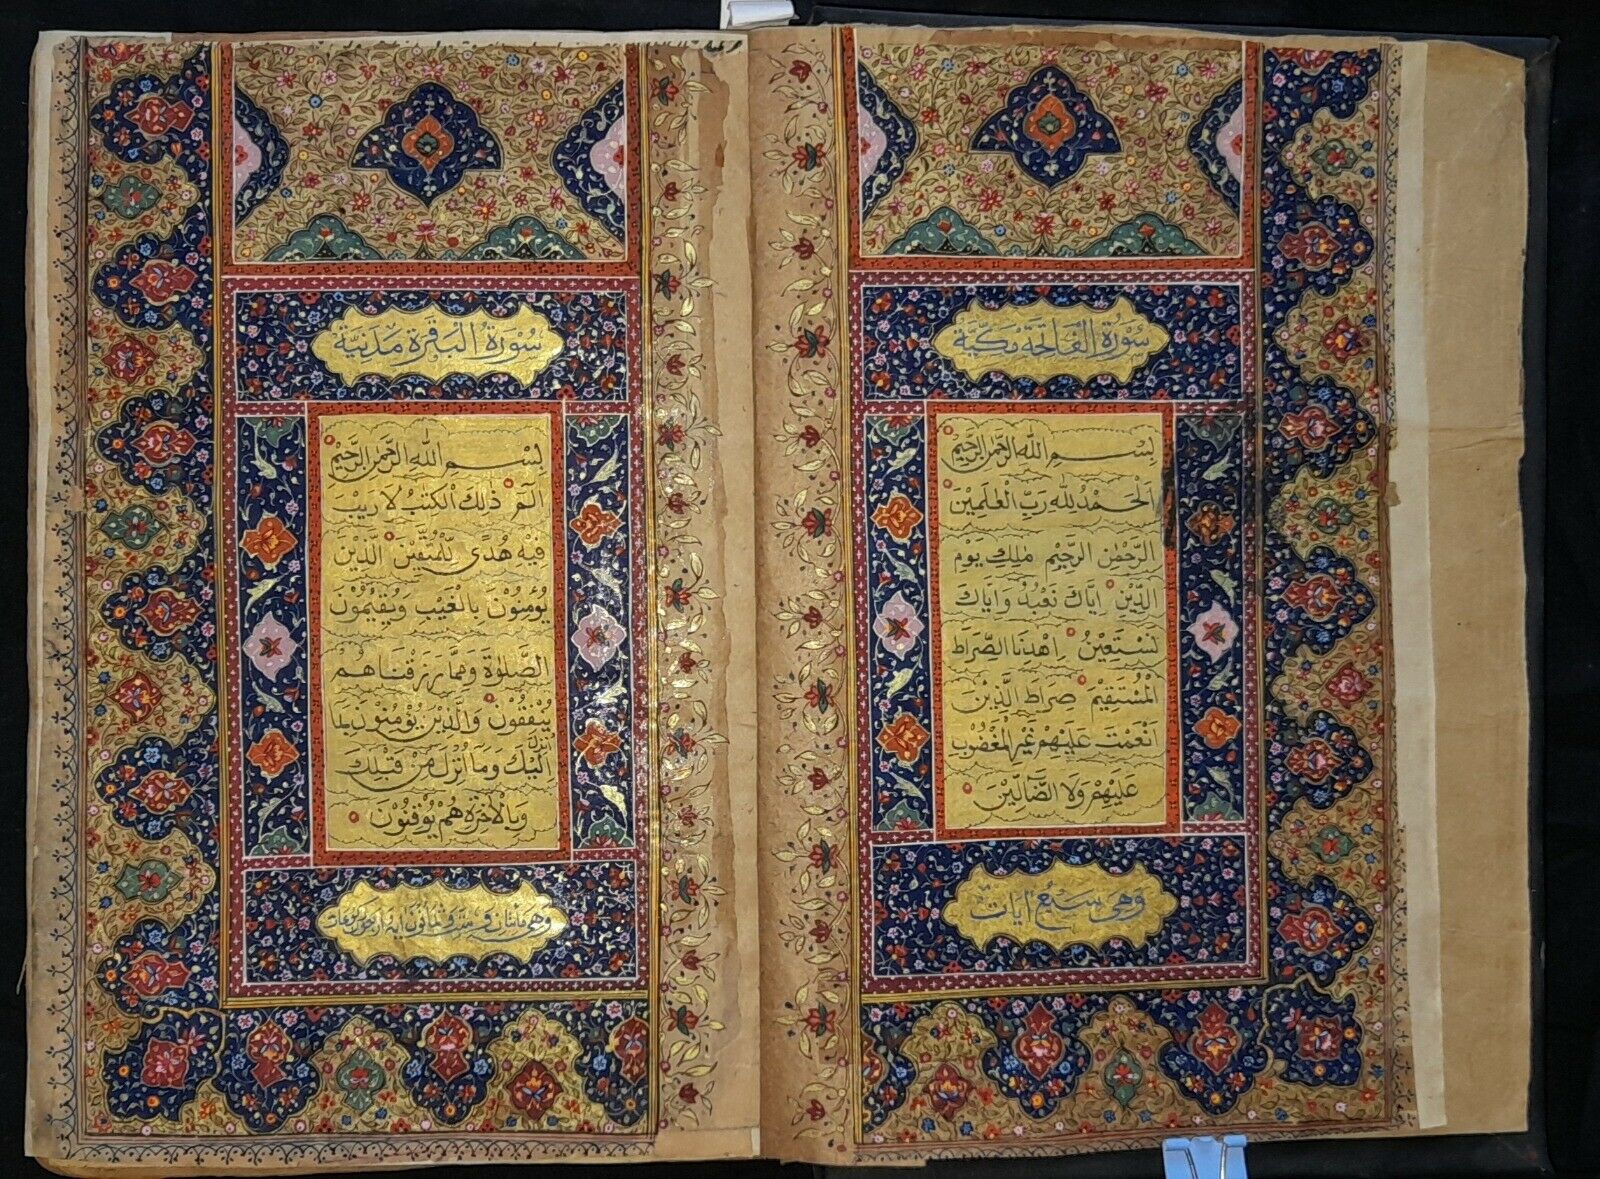 سُوْرَةُ الفَاتِحَة مَكِيَّة
بِسْمِ اللهِ الرَّحْمٰنِ الرَّحِيْمِ
اَلْحَمْدُ لِلّٰهِ رَبِّ الْعٰلَمِيْنَ
الرَّحْمٰنِ الرَّحِيْمِ مٰلِكِ يَوْمِ
الدِّيْنِ اِيَّاكَ نَعْبُدُ وَاِيَّاكَ
نَسْتَعِيْنُ اِهْدِنَا الصِّرَاطَ
الْمُسْتَقِيْمَ صِرَاطَ الَّذِيْنَ
اَنْعَمْتَ عَلَيْهِمْ غَيْرِ الْمَغْضُوْبِ
عَلَيْهِمْ وَلَا الضَّآلِّيْنَ
وَهِیَ سَبْعُ اٰيَات
سُوْرَةُ الْبَقَرَة مَدَنِيَّة
بِسْمِ اللهِ الرَّحْمٰنِ الرَّحِيْمِ
الٓمٓ ذٰلِكَ الْكِتٰبُ لَا رَيْبَ
فِيْهِ هُدًى لِلْمُتَّقِيْنَ الَّذِيْنَ
يُؤْمِنُوْنَ بِالْغَيْبِ وَيُقِيْمُوْنَ
الصَّلٰوةَ وَمِمَّا رَزَقْنَاهُمْ
يُنْفِقُوْنَ وَالَّذِيْنَ يُؤْمِنُوْنَ بِمَا
اُنْزِلَ
اِلَيْكَ وَمَا اُنْزِلَ مِنْ قَبْلِكَ
وَبِالْاٰخِرَةِ هُمْ يُوْقِنُوْنَ
وهی مائتان و ست و ثمانون اية